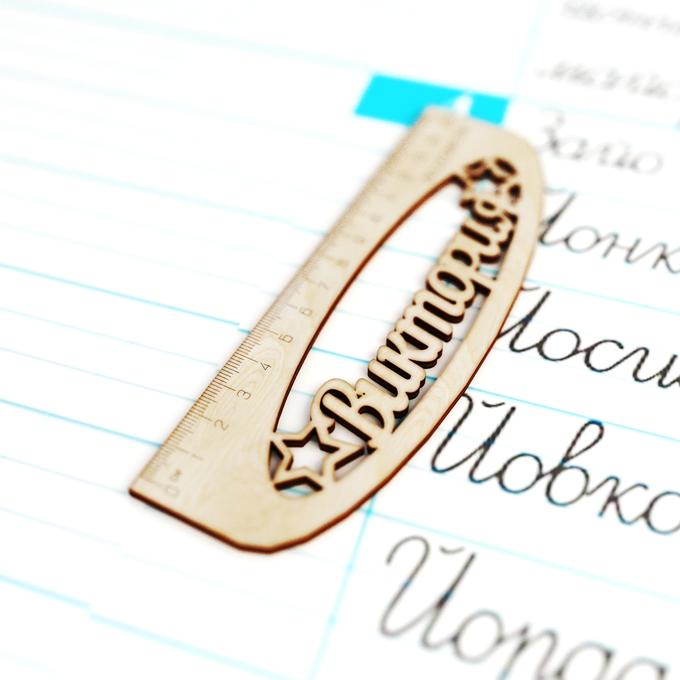 Зайо
Йонк
Йоси
Йовко
Йорда
Виктория
0 см 1 2 3 4 5 6 7 8